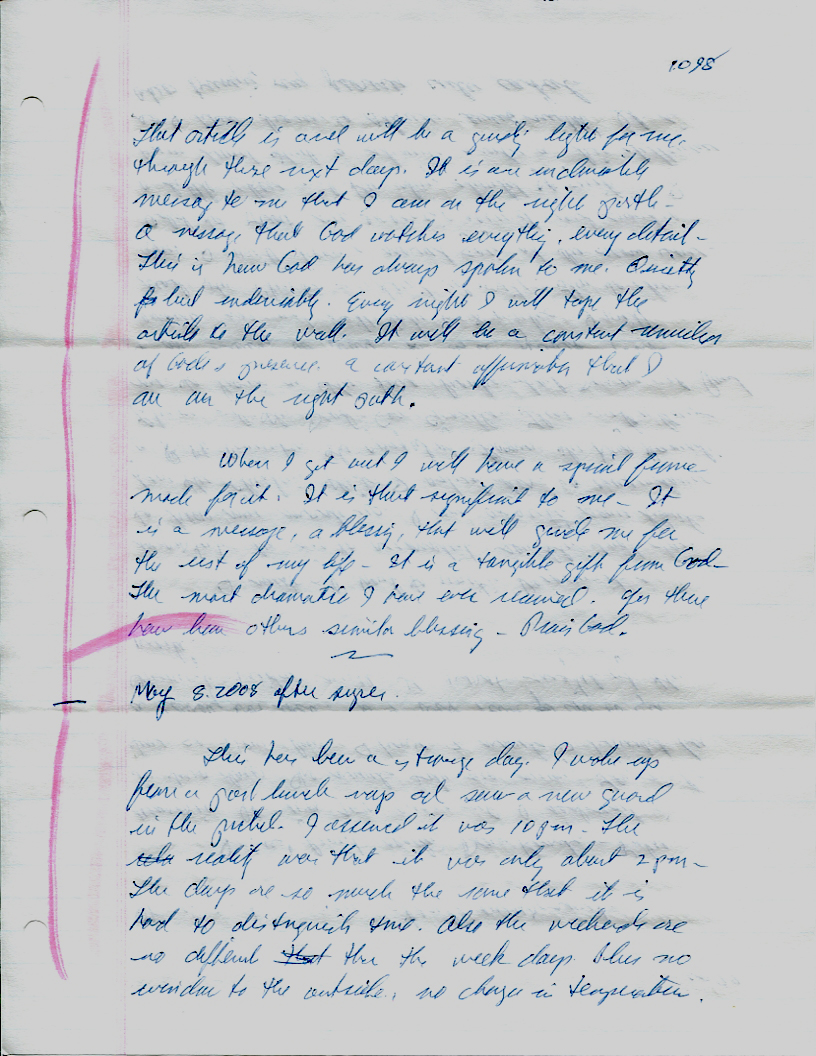 1098
That article is and will be a guiding light for me
through these next days. It is an undeniable
message to me that I am on the right path -
a message that God watches everything, every detail -
This is how God has always spoken to me. Quietly
but undeniably. Every night I will tape the
article to the wall. It will be a constant reminder
of God's presence. a constant affirmation that I
am on the right path.
When I get out I will have a special frame
made for it. It is that significant to me - It
is a message, a blessing, that will guide me for
the rest of my life - It is a tangible gift from God -
The most dramatic I have ever received. Yes there
have been others similar blessing - Praise God.
May 8. 2008 after supper.
This has been a strange day. I woke up
from a post lunch nap and saw a new guard
in the . I assumed it was 10 pm - The
reality was that it was only about 2 pm -
The days are so much the same that it is
hard to distinguish time. Also the weekends are
no different that than the week days. Plus no
window to the outside, no change in temperature.